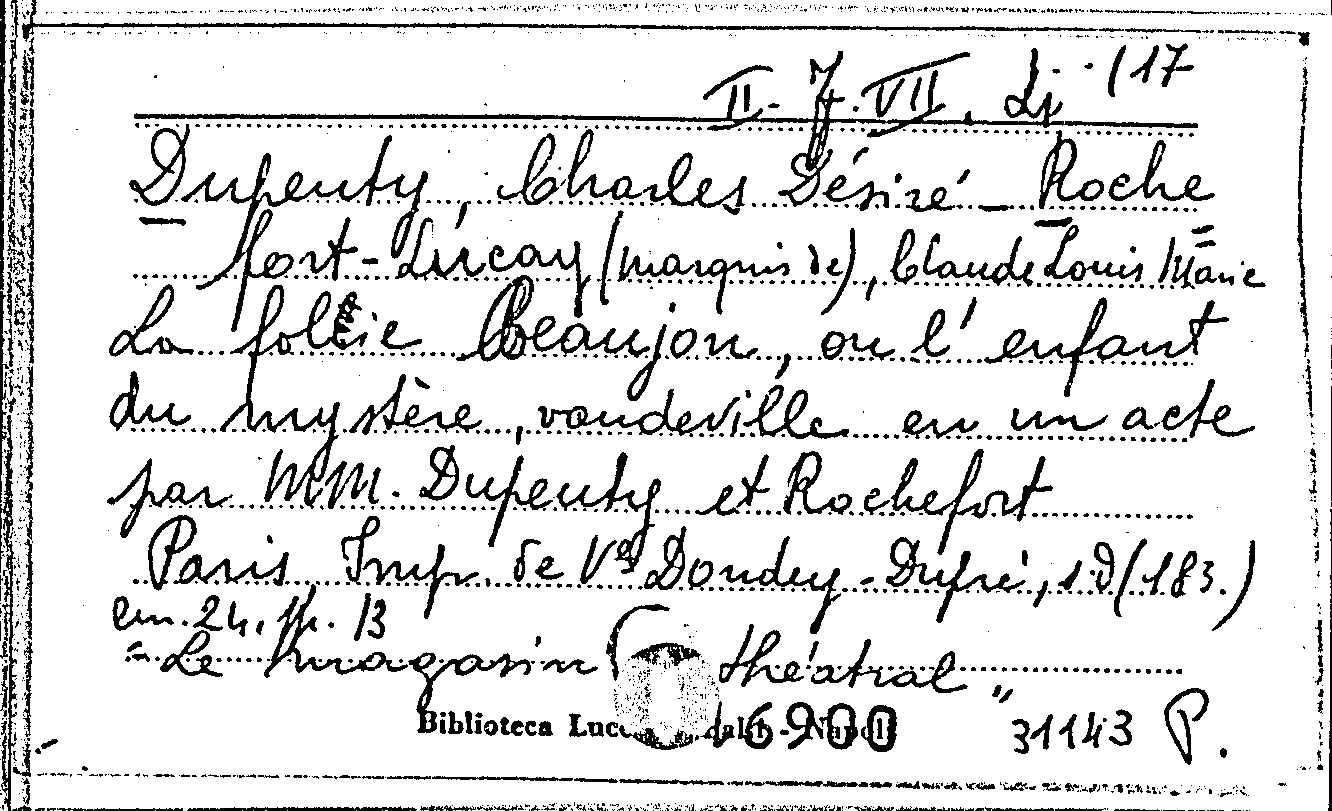 II - J. VII. Li (17
Dupeuty, Charles Désiré - Roche
fort-Lucay (marquis de), Claude Louis Marie
La folie Beaujon, ou l'enfant
du mystère, vaudeville en un acte
par MM. Dupeuty et Rochefort
Paris, Imp. de Ve Dondey-Dupré, s.d (183.)
cm. 24, pp. 13
"Le magasin théatral"
Biblioteca Lucchesi
16900 31143 P.